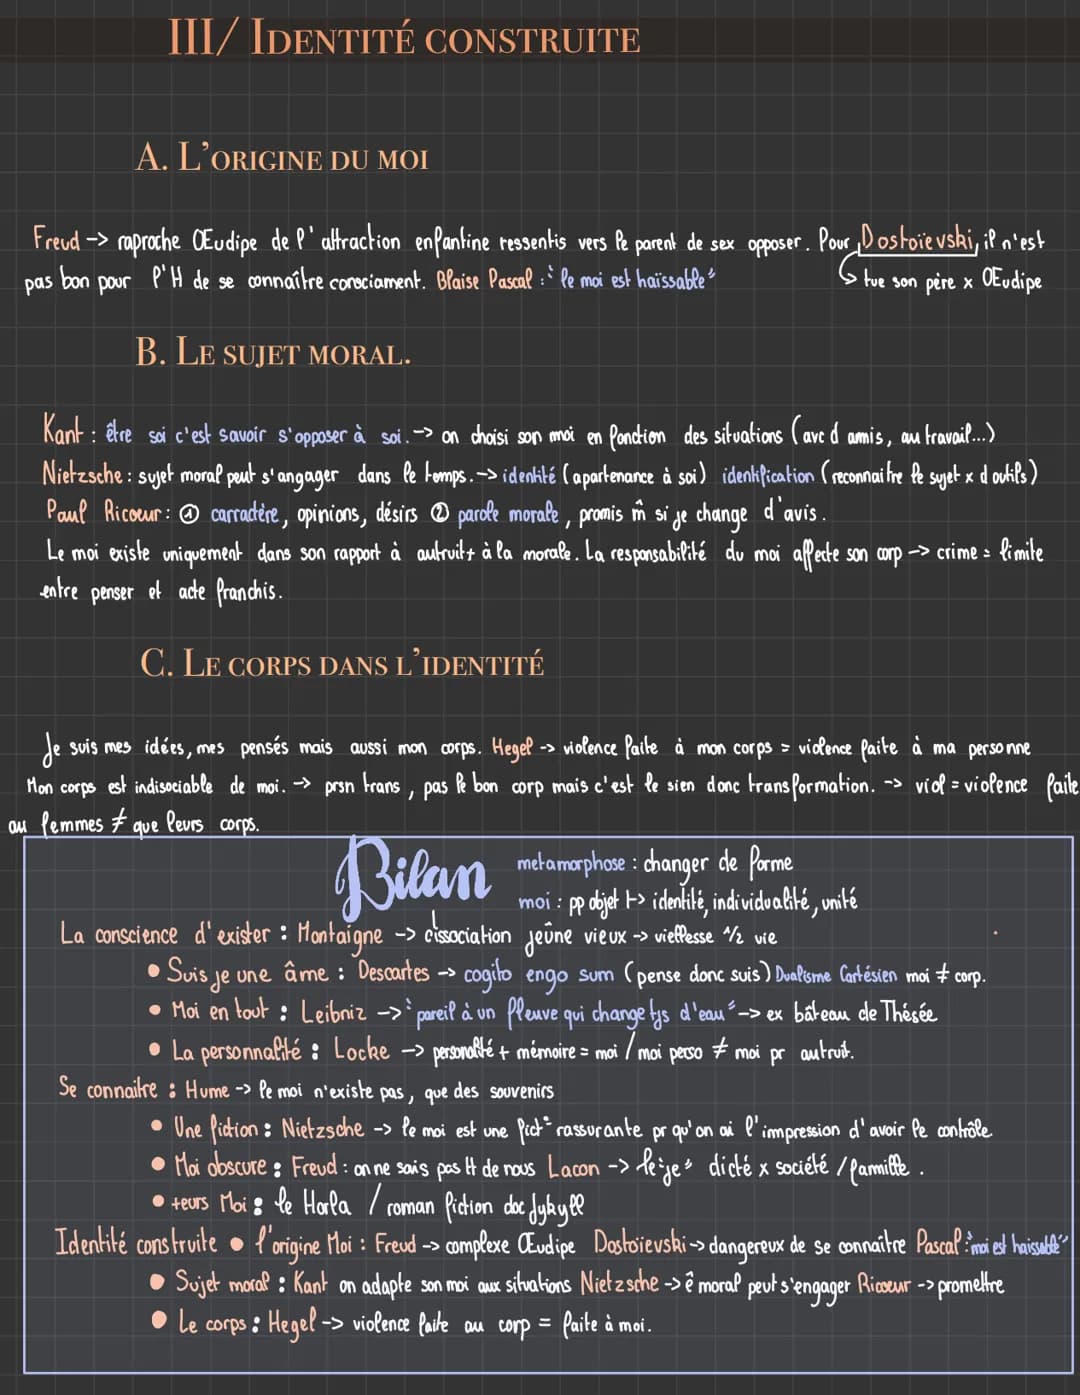 III/ IDENTITÉ CONSTRUITE
A. L'ORIGINE DU MOI
Freud -> raproche OEudipe de l'attraction enfantine ressentis vers le parent de sex opposer. Pour Dostoïevski, il n'est
pas bon pour l'H de se connaître consciament. Blaise Pascal : "le moi est haïssable"
↳ tue son père x OEudipe
B. LE SUJET MORAL.
Kant : être soi c'est savoir s'opposer à soi. -> on choisi son moi en fonction des situations (avc d amis, au travail...)
Nietzsche : sujet moral peut s'angager dans le temps. -> identité (apartenance à soi) identification (reconnaitre le sujet x d outils)
Paul Ricoeur : ① carractère, opinions, désirs ② parole morale, promis m̂ si je change d'avis.
Le moi existe uniquement dans son rapport à autruit + à la morale. La responsabilité du moi affecte son corp -> crime = limite
entre penser et acte franchis.
C. LE CORPS DANS L'IDENTITÉ
Je suis mes idées, mes pensés mais aussi mon corps. Hegel -> violence faite à mon corps = violence faite à ma personne
Mon corps est indisociable de moi. -> prsn trans, pas le bon corp mais c'est le sien donc transformation. -> viol = violence faite
au femmes ≠ que leurs corps.
Bilan
metamorphose : changer de forme
moi : pp objet -> identité, individualité, unité
La conscience d'exister : Montaigne -> dissociation jeûne vieux -> viellesse 1/2 vie
• Suis je une âme : Descartes -> cogito engo sum (pense donc suis) Dualisme Cartésien moi ≠ corp.
• Moi en tout : Leibniz -> "pareil à un fleuve qui change tjs d'eau" -> ex bâteau de Thésée
• La personnalité : Locke -> personalité + mémoire = moi / moi perso ≠ moi pr autruit.
Se connaitre : Hume -> le moi n'existe pas, que des souvenirs
• Une fiction : Nietzsche -> le moi est une fict° rassurante pr qu'on ai l'impression d'avoir le contrôle.
• Moi obscure : Freud : on ne sais pas tt de nous Lacan -> le "je" dicté x société / famille.
• +eurs Moi : le Horla / roman fiction doc Jykyll
Identité construite • l'origine Moi : Freud -> complexe OEudipe Dostoïevski -> dangereux de se connaître Pascal : "moi est haissable"
• Sujet moral : Kant on adapte son moi aux situations Nietzsche -> ê moral peut s'engager Ricoeur -> promettre
• Le corps : Hegel -> violence faite au corp = faite à moi.